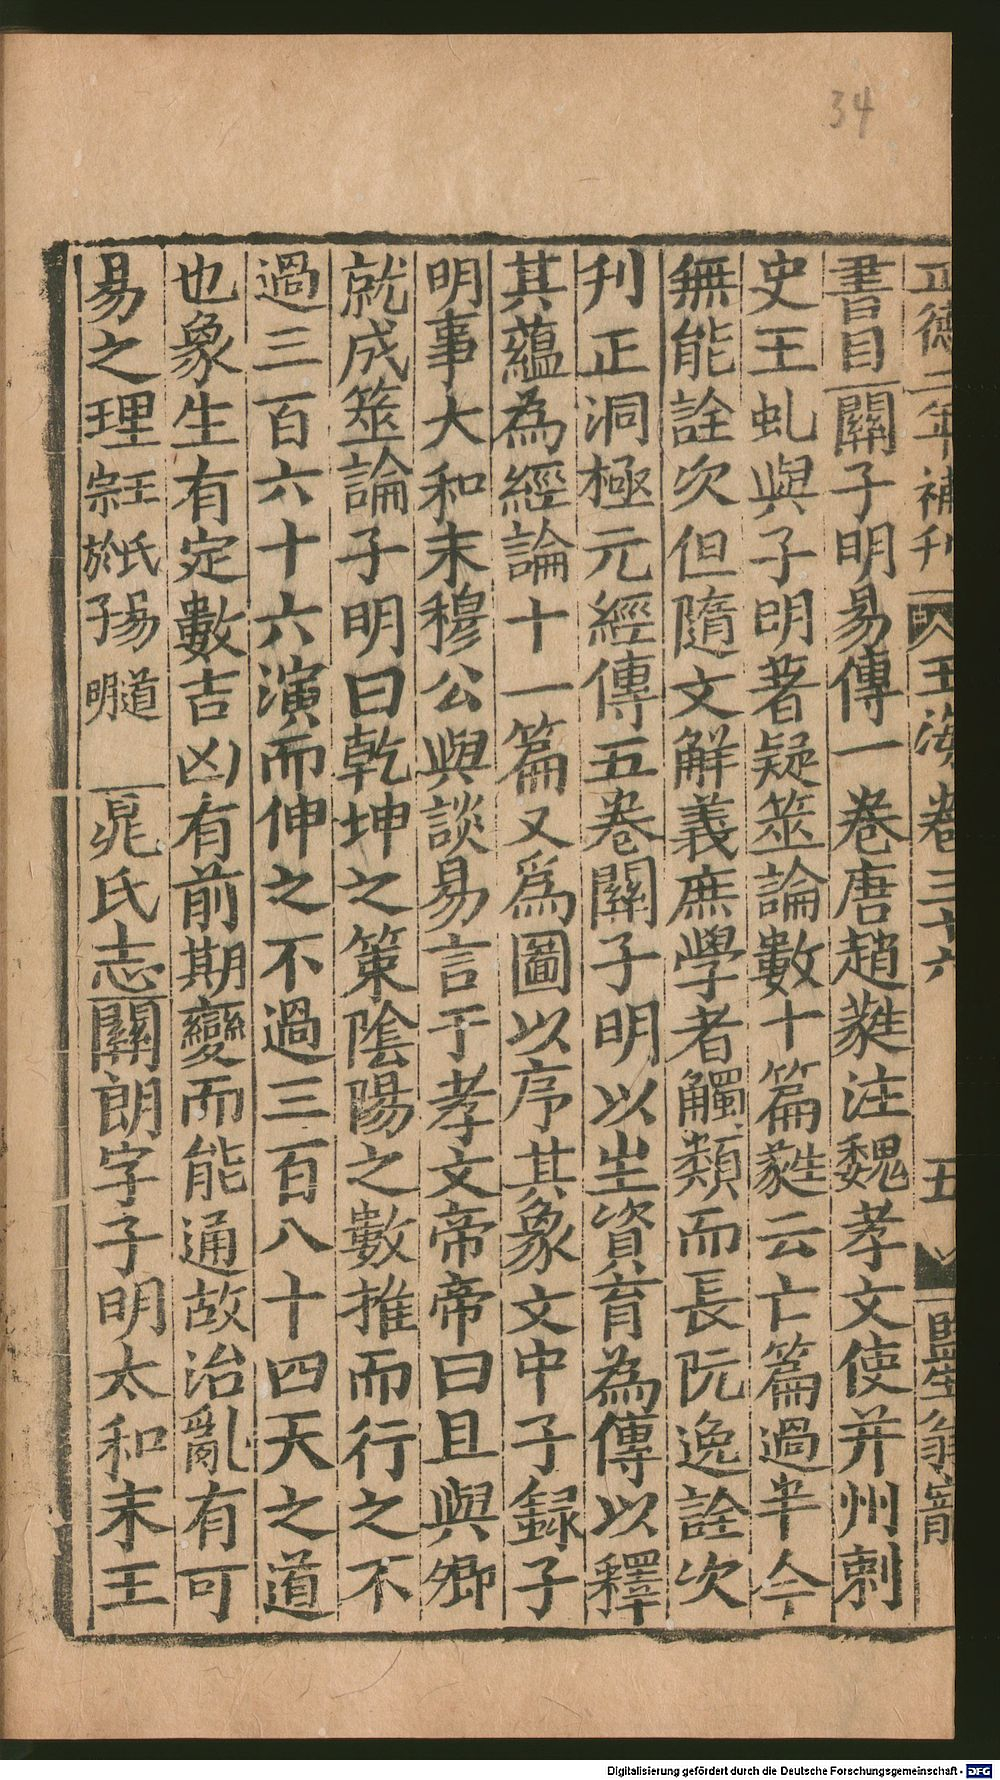 34
正德二年補刊 玉海卷三十六 五 監生翁寵
書目關子明易傳一卷唐趙蕤注魏孝文使并州刺
史王虬與子明著疑筮論數十篇蕤云亡篇過半今
無能詮次但隨文解義庶學者觸類而長阮逸詮次
刋正洞極元經傳五卷關子明以生資育為傳以釋
其蘊為經論十一篇又爲圖以序其象文中子録子
明事大和末穆公與談易言于孝文帝帝曰且與卿
就成筮論子明曰乾坤之策陰陽之數推而行之不
過三百六十六演而伸之不過三百八十四天之道
也象生有定數吉凶有前期變而能通故治亂有可
易之理王氏易道宗於子明 晁氏志關朗字子明太和末王
Digitalisierung gefördert durch die Deutsche Forschungsgemeinschaft - DFG